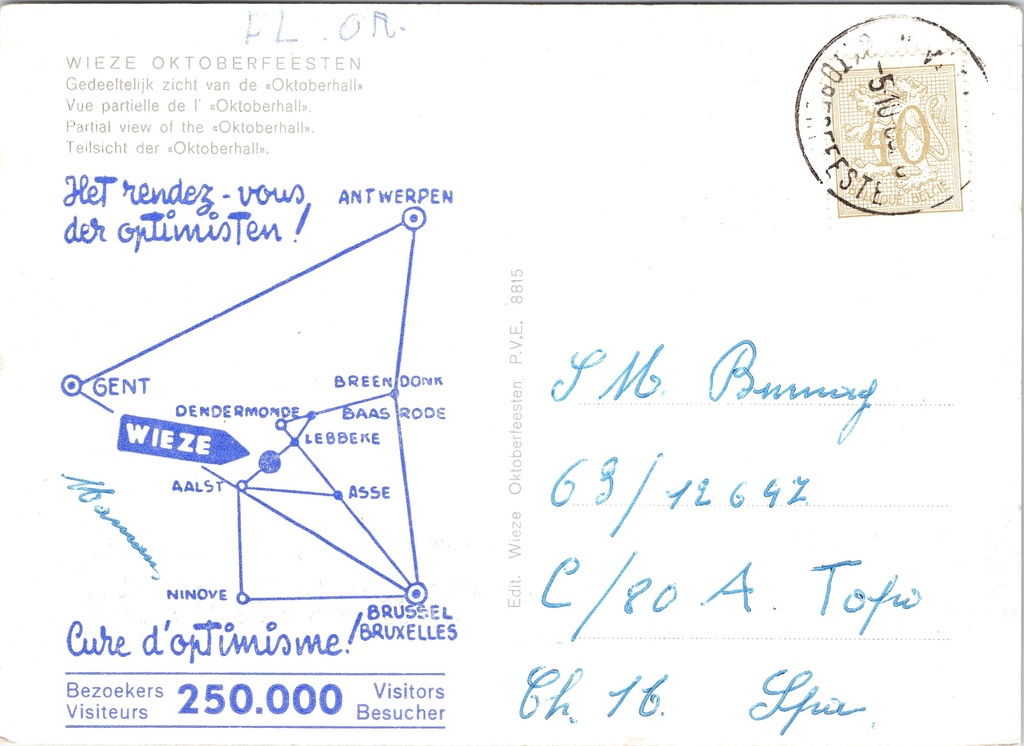 FL. OR.
WIEZE OKTOBERFEESTEN
Gedeeltelijk zicht van de «Oktoberhall»
Vue partielle de l' «Oktoberhall».
Partial view of the «Oktoberhall».
Teilsicht der «Oktoberhall».
Het rendez-vous
der optimisten!
ANTWERPEN
GENT
BREENDONK
DENDERMONDE
BAASRODE
LEBBEKE
WIEZE
AALST
ASSE
NINOVE
BRUSSEL
BRUXELLES
Cure d'optimisme!
Bezoekers
Visiteurs
250.000
Visitors
Besucher
Edit. Wieze Oktoberfeesten P.V.E. 8815
40
BELGIQUE BELGIË
-5 10
63/12697
C/80 A Topo
Ch. 16. Spa